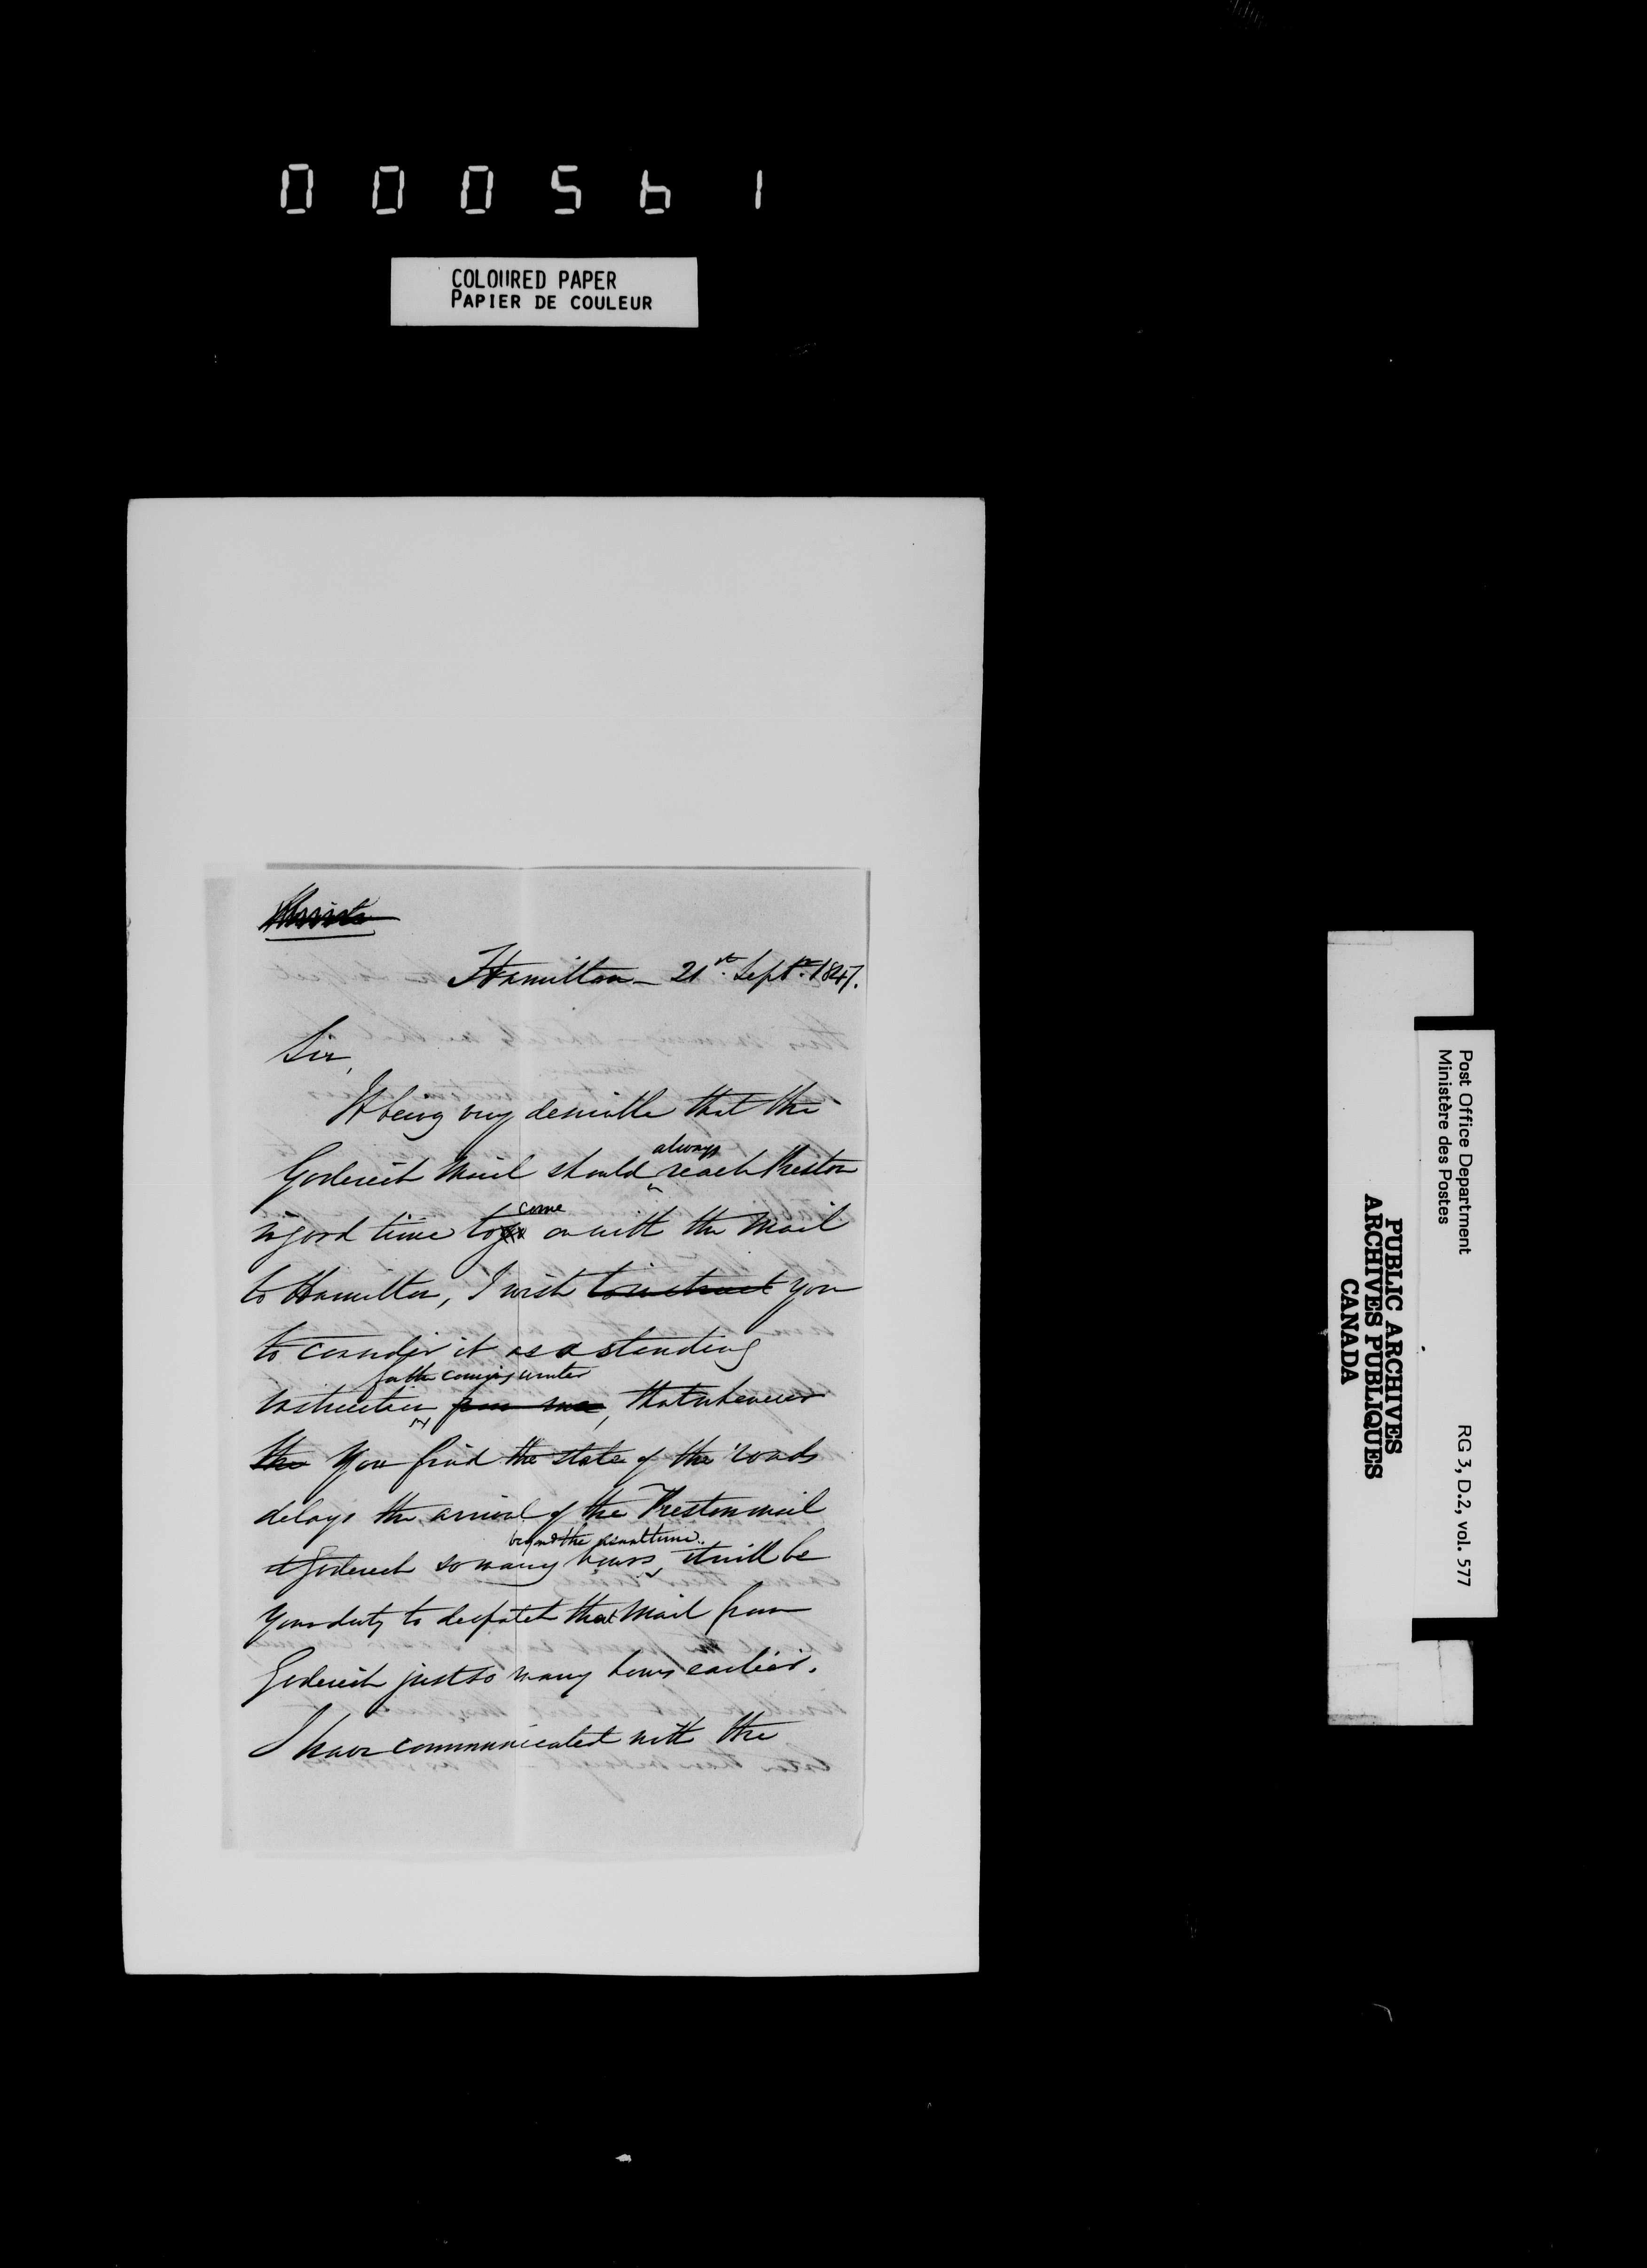 000561
COLOURED PAPER
PAPIER DE COULEUR
Hamilton - 21st. Septr. 1847.
Sir,
It being very desirable that the
Goderich Mail should always reach Preston
in good time to go come on with the Mail
to Hamilton, I wish to instruct you
to consider it as a standing
instruction for the coming winter from me, that whenever
the You find the state of the roads
delays the arrival of the Preston mail
at Goderich so many hours beyond the usual time, it will be
your duty to despatch that Mail from
Goderich just so many hours earlier.
I have communicated with the
Post Office Department
Ministère des Postes
RG 3, D.2, vol. 577
PUBLIC ARCHIVES
ARCHIVES PUBLIQUES
CANADA